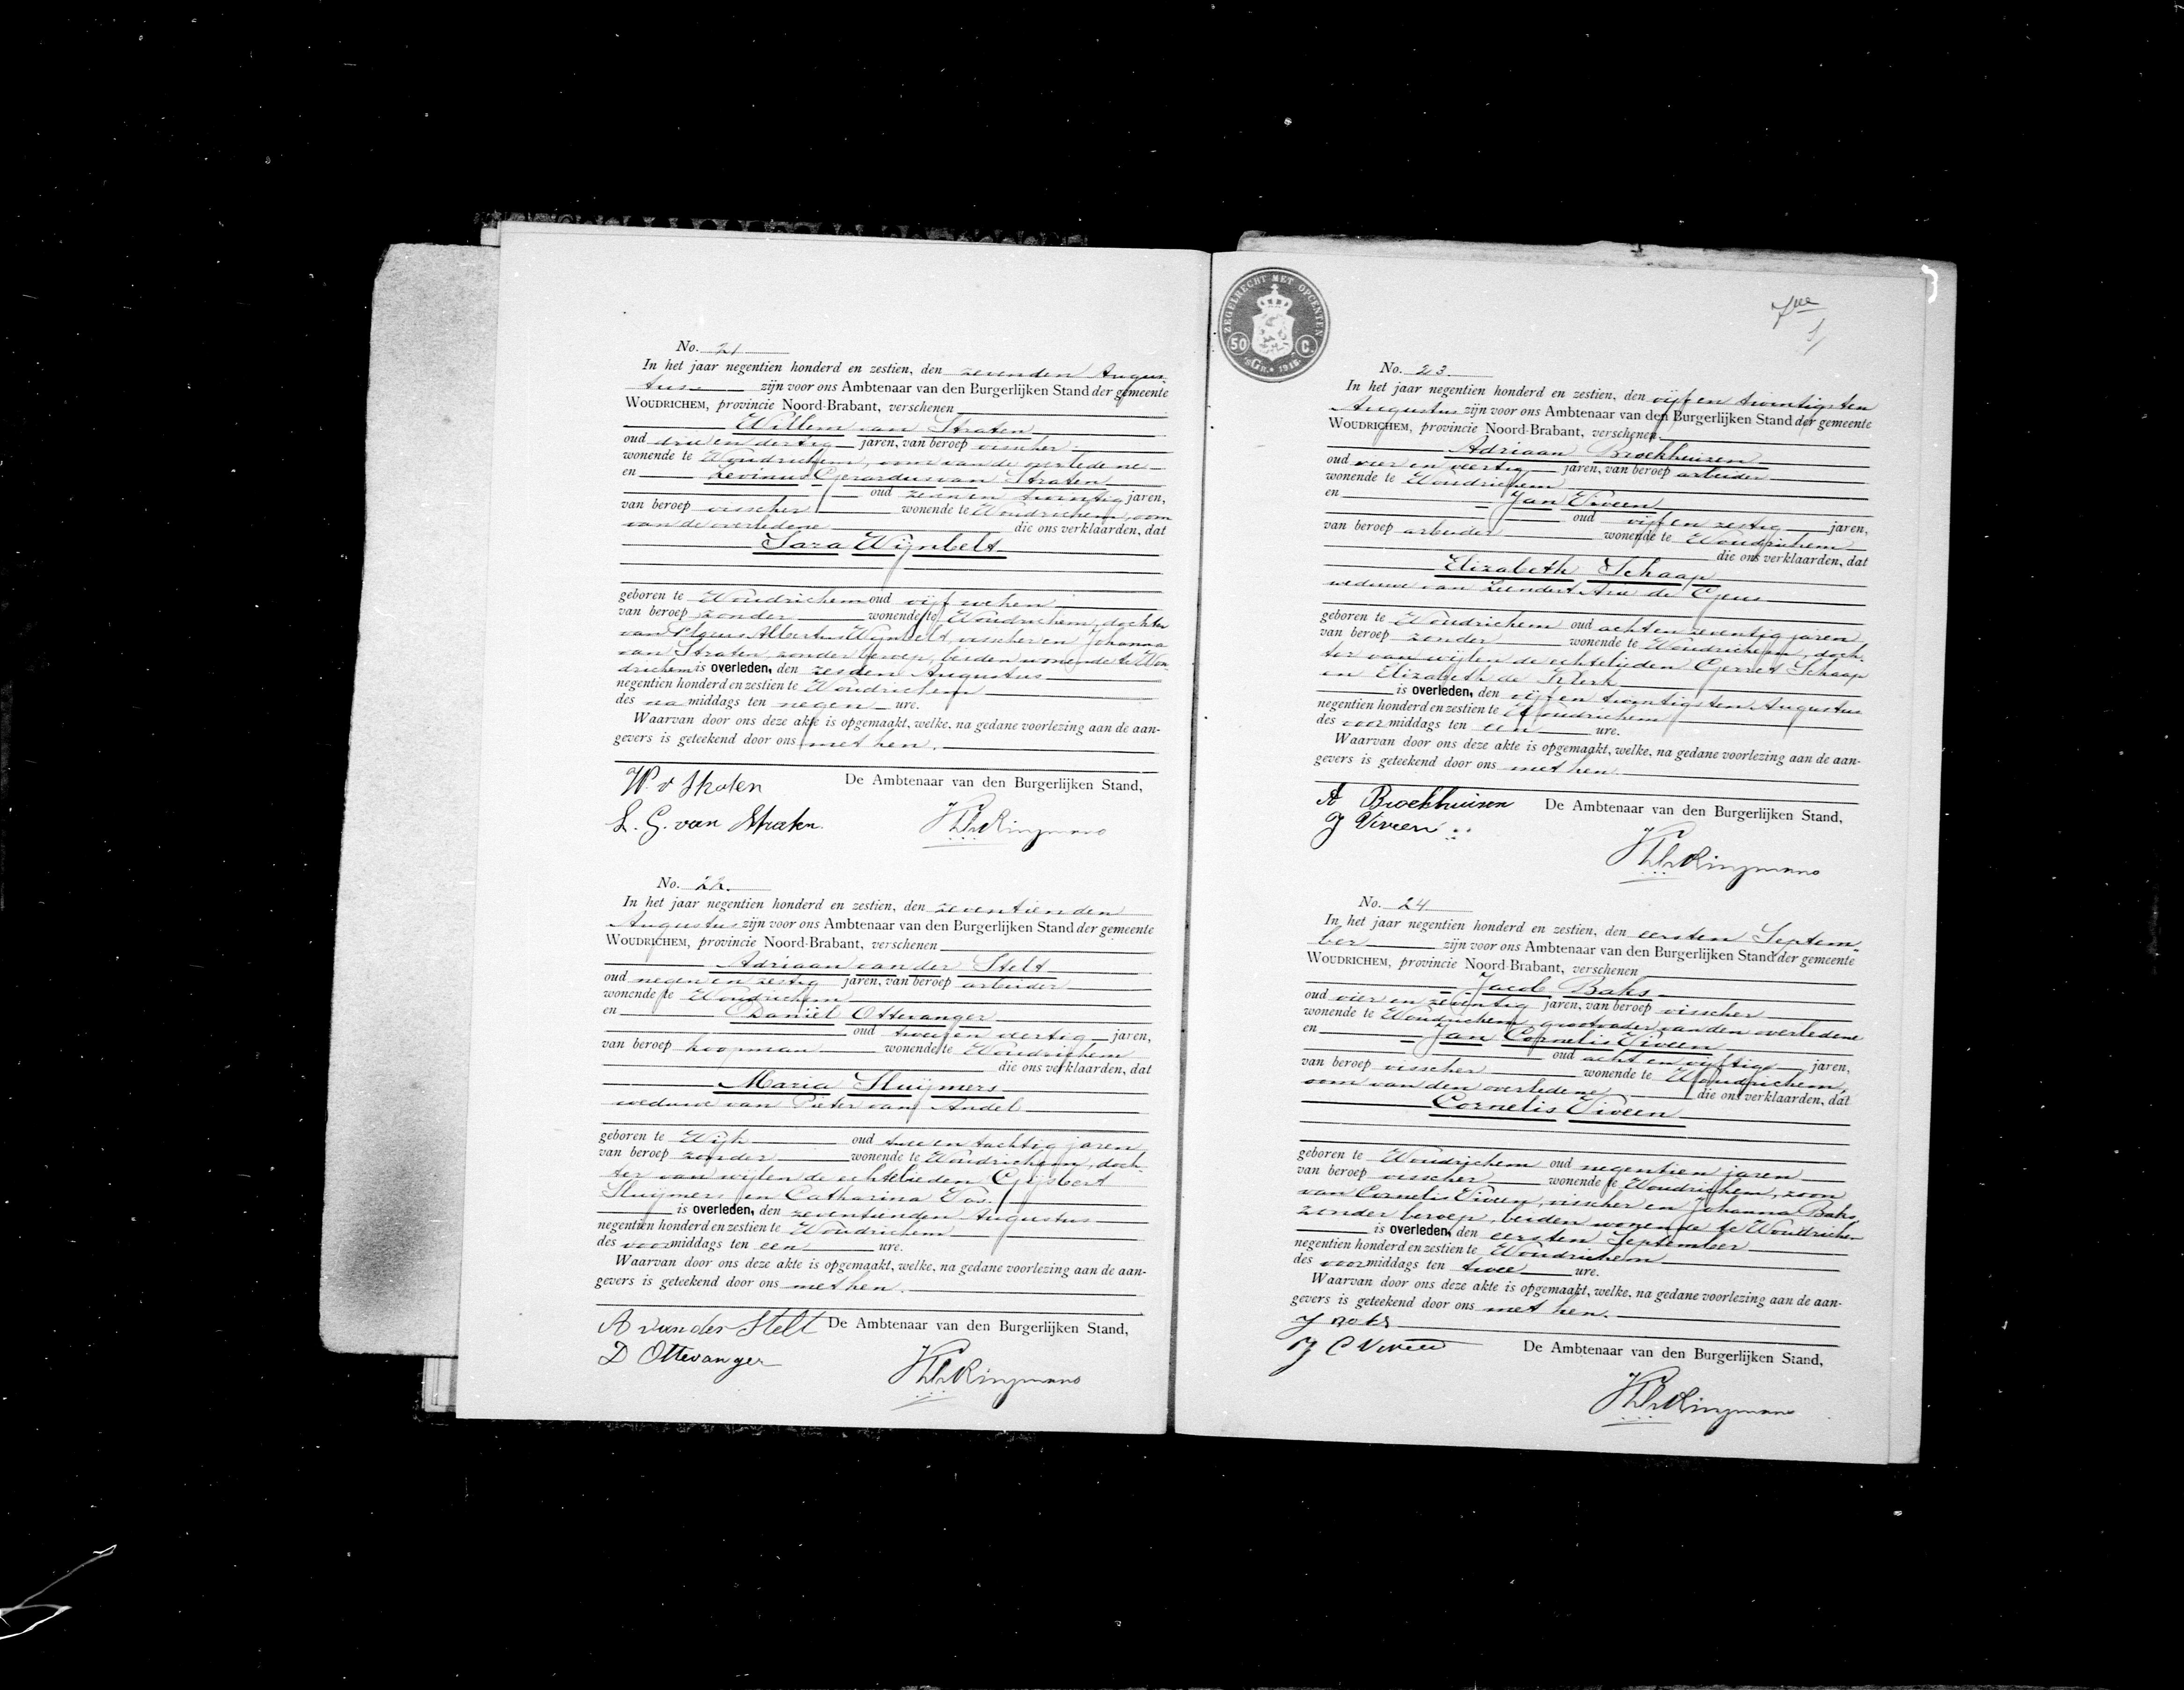 No. 21
In het jaar negentien honderd en zestien, den zevenden Augus
tus zijn voor ons Ambtenaar van den Burgerlijken Stand der gemeente
WOUDRICHEM, provincie Noord-Brabant, verschenen
Willem van Straten
oud drie en dertig jaren, van beroep visscher
wonende te Woudrichem, oom van de overledene
en Levinus Gerardus van Straten
oud zeven en twintig jaren,
van beroep visscher wonende te Woudrichem, oom
van de overledene die ons verklaarden, dat
Sara Wijnbelt
geboren te Woudrichem oud vijf weken
van beroep zonder wonende te Woudrichem, dochter
van Albertus Wijnbelt, visscher en Johanna
van Straten, zonder beroep, beiden wonende te Wou-
drichem is overleden, den zesden Augustus
negentien honderd en zestien te Woudrichem
des na middags ten negen ure.
Waarvan door ons deze akte is opgemaakt, welke, na gedane voorlezing aan de aan-
gevers is geteekend door ons met hen.
W. v Straten De Ambtenaar van den Burgerlijken Stand,
L. G. van Straten.
No. 22.
In het jaar negentien honderd en zestien, den zeventienden
Augustus zijn voor ons Ambtenaar van den Burgerlijken Stand der gemeente
WOUDRICHEM, provincie Noord-Brabant, verschenen
Adriaan van der Stelt
oud negen en zestig jaren, van beroep arbeider
wonende te Woudrichem
en Daniël Ottevanger
oud twee en veertig jaren,
van beroep koopman wonende te Woudrichem
die ons verklaarden, dat
Maria Sluijmers
weduwe van Pieter van Andel
geboren te Wijk oud twee en tachtig jaren
van beroep zonder wonende te Woudrichem, doch-
ter van wijlen de echtelieden Gijsbert
Sluijmers en Catharina Vos.
is overleden, den zeventienden Augustus
negentien honderd en zestien te Woudrichem
des voormiddags ten een ure.
Waarvan door ons deze akte is opgemaakt, welke, na gedane voorlezing aan de aan-
gevers is geteekend door ons met hen.
A van der Stelt De Ambtenaar van den Burgerlijken Stand,
D Ottevanger
ZEGELRECHT MET OPCENTEN
50 C.
No. 23.
In het jaar negentien honderd en zestien, den vijf en twintigsten
Augustus zijn voor ons Ambtenaar van den Burgerlijken Stand der gemeente
WOUDRICHEM, provincie Noord-Brabant, verschenen
Adriaan Broekhuizen
oud vier en veertig jaren, van beroep arbeider
wonende te Woudrichem
en Jan Viveen
oud vijf en zestig jaren,
van beroep arbeider wonende te Woudrichem
die ons verklaarden, dat
Elizabeth Schaap
weduwe van Leendert Arie de Geus
geboren te Woudrichem oud acht en zeventig jaren
van beroep zonder wonende te Woudrichem, doch-
ter van wijlen de echtelieden Gerrit Schaap
en Elizabeth de Klerk
is overleden, den vijf en twintigsten Augustus
negentien honderd en zestien te Woudrichem
des voor middags ten een ure.
Waarvan door ons deze akte is opgemaakt, welke, na gedane voorlezing aan de aan-
gevers is geteekend door ons met hen.
A Broekhuizen De Ambtenaar van den Burgerlijken Stand,
J Viveen
No. 24
In het jaar negentien honderd en zestien, den eersten Septem
ber zijn voor ons Ambtenaar van den Burgerlijken Stand der gemeente
WOUDRICHEM, provincie Noord-Brabant, verschenen
Jacob Baks
oud vier en zeventig jaren, van beroep visscher
wonende te Woudrichem, grootvader van den overledene
en Jan Cornelis Viveen
oud acht en vijftig jaren,
van beroep visscher wonende te Woudrichem,
oom van den overledene die ons verklaarden, dat
Cornelis Viveen
geboren te Woudrichem oud negentien jaren
van beroep visscher wonende te Woudrichem, zoon
van Cornelis Viveen, visscher en Johanna Baks,
zonder beroep, beiden wonende te Woudrichem
is overleden, den eersten September
negentien honderd en zestien te Woudrichem
des voormiddags ten twee ure.
Waarvan door ons deze akte is opgemaakt, welke, na gedane voorlezing aan de aan-
gevers is geteekend door ons met hen.
J Baks
J C Viveen De Ambtenaar van den Burgerlijken Stand,